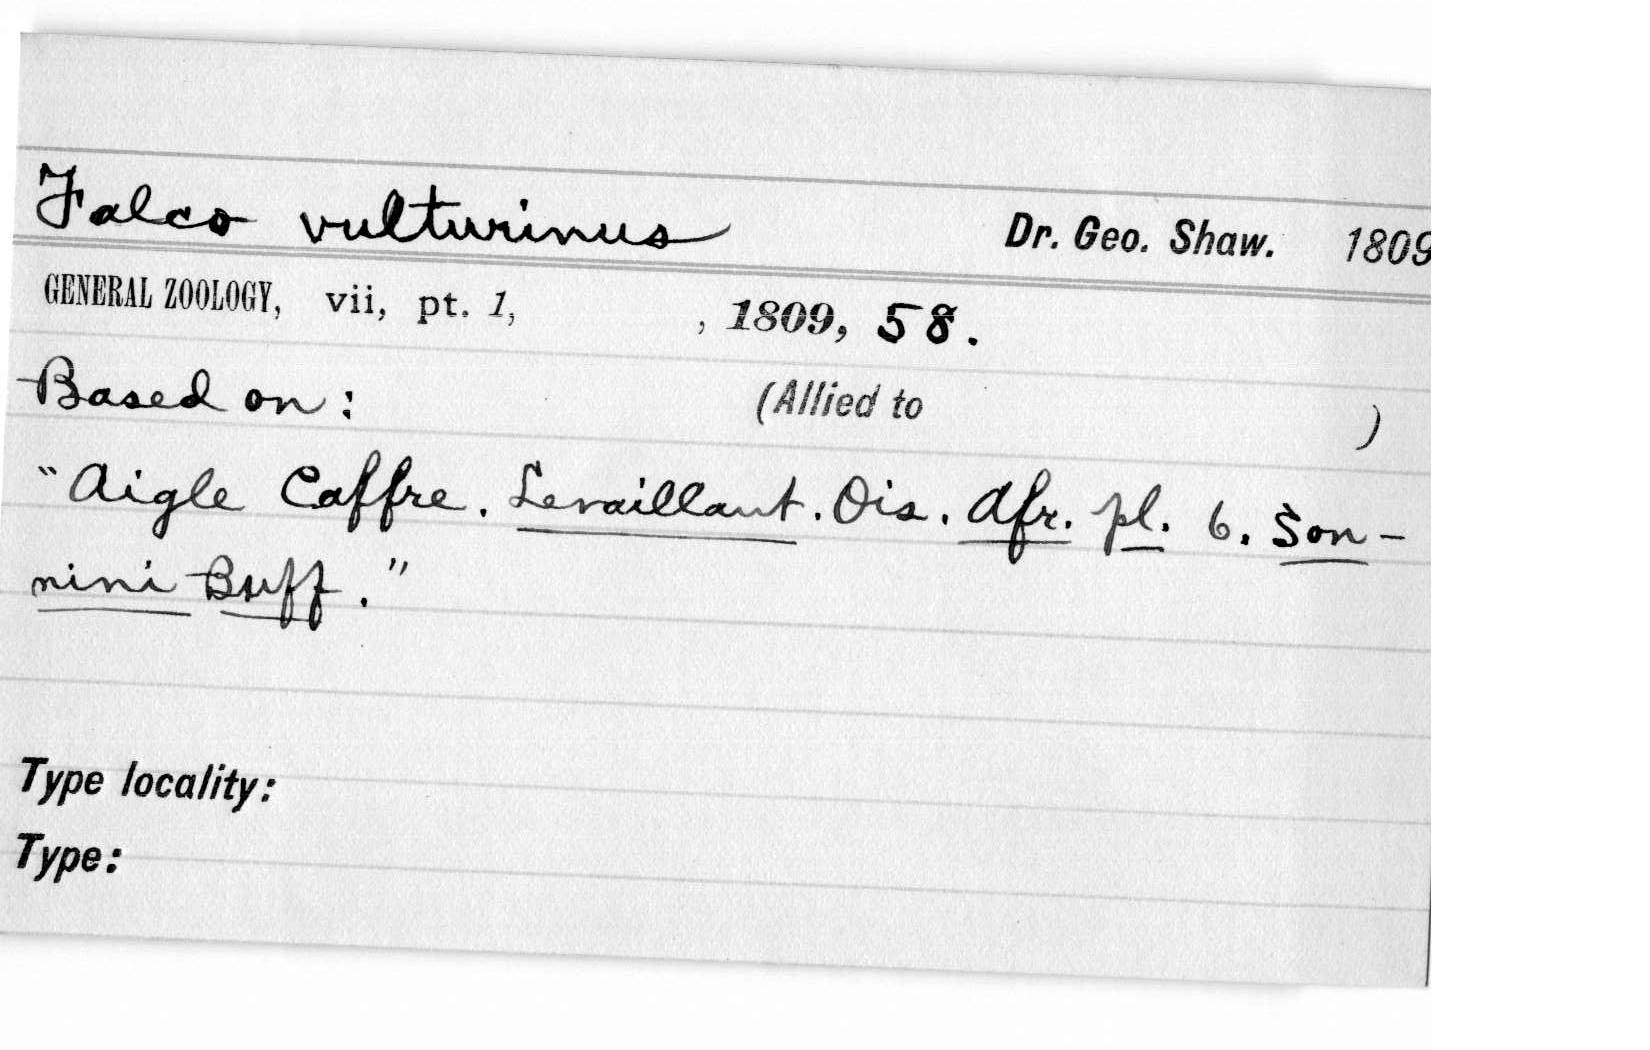 Falco vulturinus Dr. Geo. Shaw. 1809
GENERAL ZOOLOGY, vii, pt. 1, , 1809, 58.
Based on: (Allied to )
"Aigle Caffre. Levaillant. Ois. Afr. pl. 6. Son-
nini Buff."
Type locality:
Type: